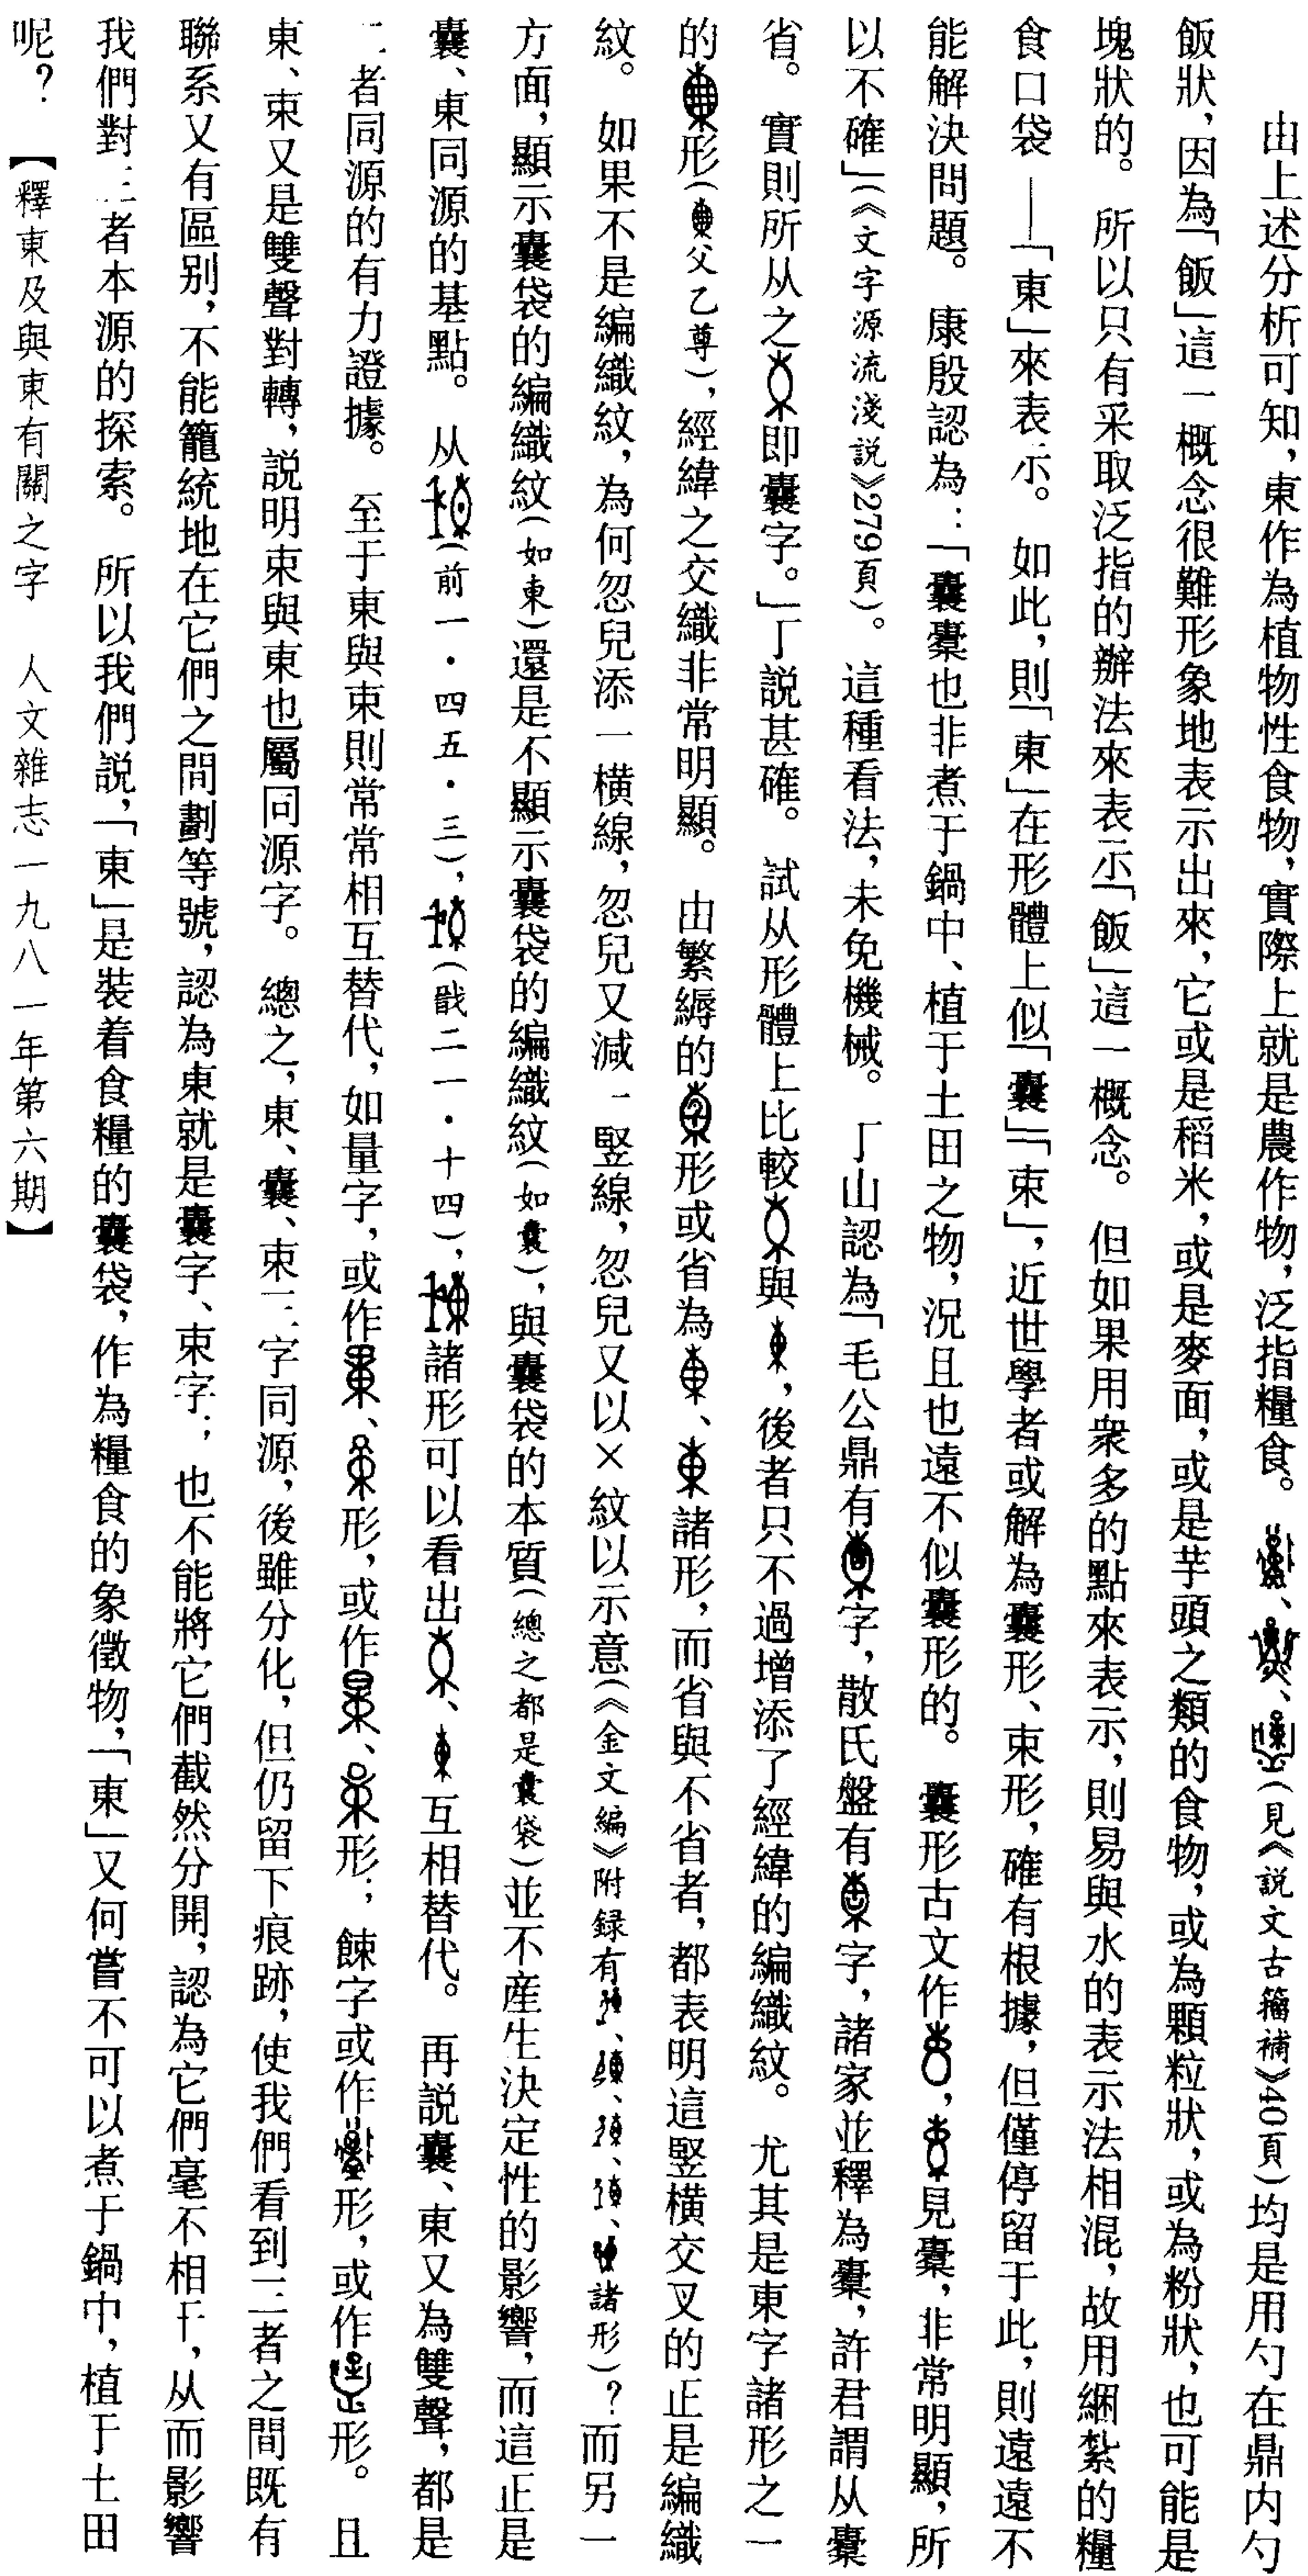 由上述分析可知，東作為植物性食物，實際上就是農作物，泛指糧食。、、（見《説文古籀補》40頁）均是用勺在鼎内勺
飯狀，因為「飯」這一概念很難形象地表示出來，它或是稻米，或是麥面，或是芋頭之類的食物，或為顆粒狀，或為粉狀，也可能是
塊狀的。所以只有采取泛指的辦法來表示「飯」這一概念。但如果用衆多的點來表示，則易與水的表示法相混，故用綑紮的糧
食口袋——「東」來表示。如此，則「東」在形體上似「囊」「束」，近世學者或解為囊形、束形，確有根據，但僅停留于此，則遠遠不
能解決問題。康殷認為：「囊橐也非煮于鍋中、植于土田之物，況且也遠不似囊形的。囊形古文作，見橐，非常明顯，所
以不確」（《文字源流淺説》279頁）。這種看法，未免機械。丁山認為「毛公鼎有字，散氏盤有字，諸家並釋為橐，許君謂从橐
省。實則所从之即囊字。」丁説甚確。試从形體上比較與，後者只不過增添了經緯的編織紋。尤其是東字諸形之一
的形（父乙尊），經緯之交織非常明顯。由繁縟的形或省為、諸形，而省與不省者，都表明這竪横交叉的正是編織
紋。如果不是編織紋，為何忽兒添一横線，忽兒又減一竪線，忽兒又以×紋以示意（《金文編》附録有、、、、諸形）？而另一
方面，顯示囊袋的編織紋（如東）還是不顯示囊袋的編織紋（如），與囊袋的本質（總之都是囊袋）並不産生決定性的影響，而這正是
囊、東同源的基點。从（前一·四五·三），（戩二一·十四），諸形可以看出、互相替代。再説囊、東又為雙聲，都是
二者同源的有力證據。至于東與束則常常相互替代，如量字，或作、形，或作、形；餗字或作形，或作形。且
東、束又是雙聲對轉，説明束與東也屬同源字。總之，東、囊、束三字同源，後雖分化，但仍留下痕跡，使我們看到三者之間既有
聯系又有區别，不能籠統地在它們之間劃等號，認為東就是囊字、束字；也不能將它們截然分開，認為它們毫不相干，从而影響
我們對三者本源的探索。所以我們説，「東」是裝着食糧的囊袋，作為糧食的象徵物，「東」又何嘗不可以煮于鍋中，植于土田
呢？【釋東及與東有關之字　人文雜志一九八一年第六期】